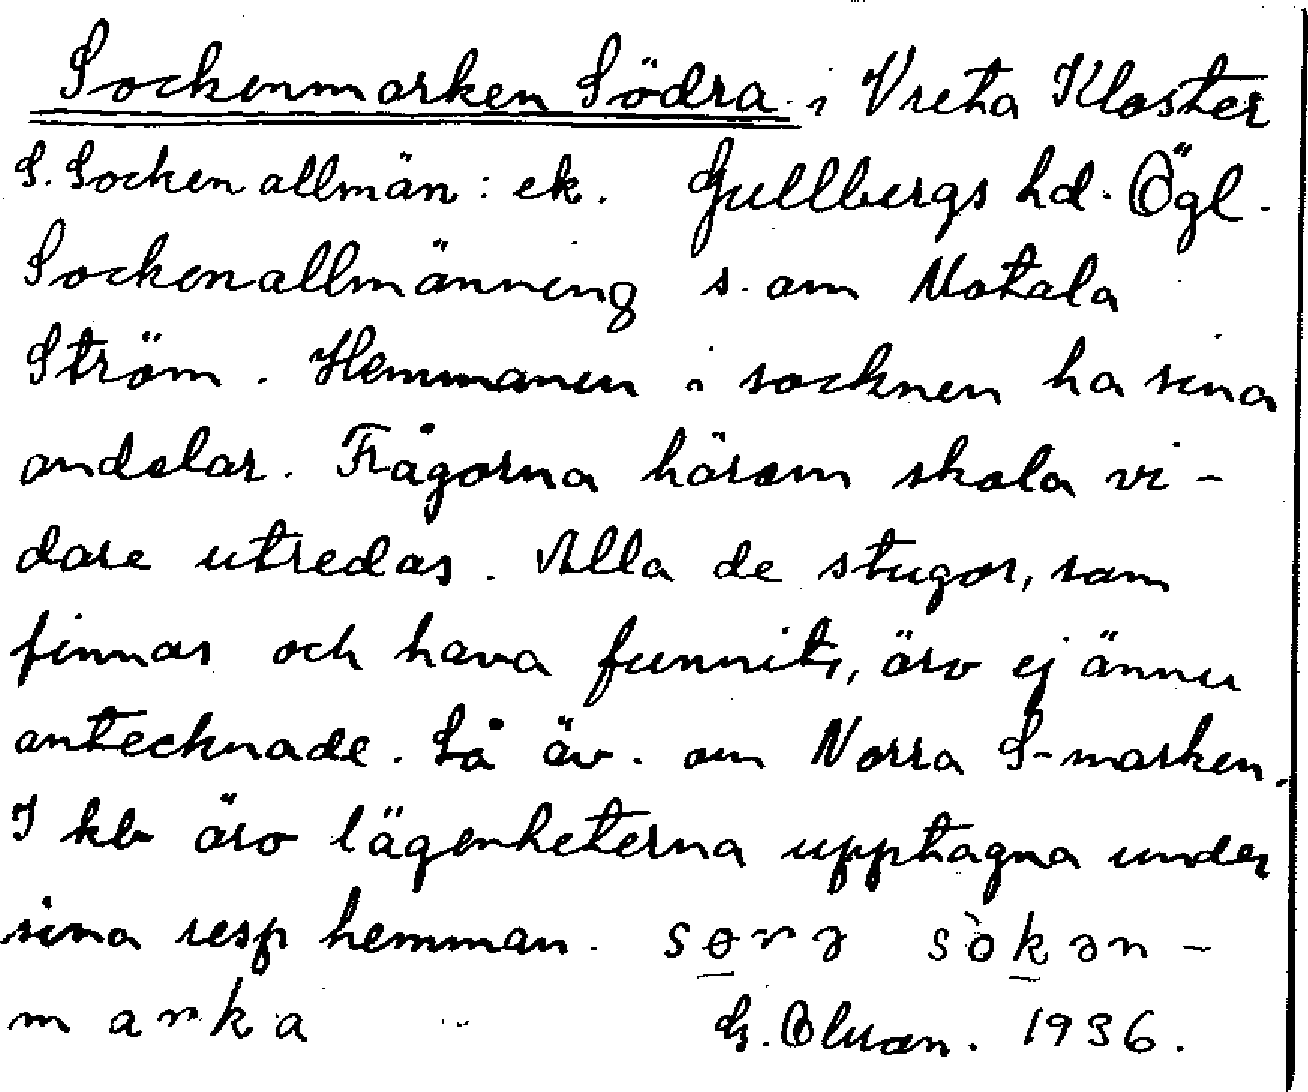 Sockenmarken Södra i Vreta Kloster
S. Socken allmän: ek. Gullbergs hd. Ögl.
Sockenallmänning s. om Motala
Ström. Hemmanen i socknen ha sina
andelar. Frågorna härom skola vi-
dare utredas. Alla de stugor, som
finnas och hava funnits, äro ej ännu
antecknade. Så äv. om Norra S-marken.
I kb äro lägenheterna upptagna under
sina resp hemman. sɵrə sòkən-
marka G. 1936.